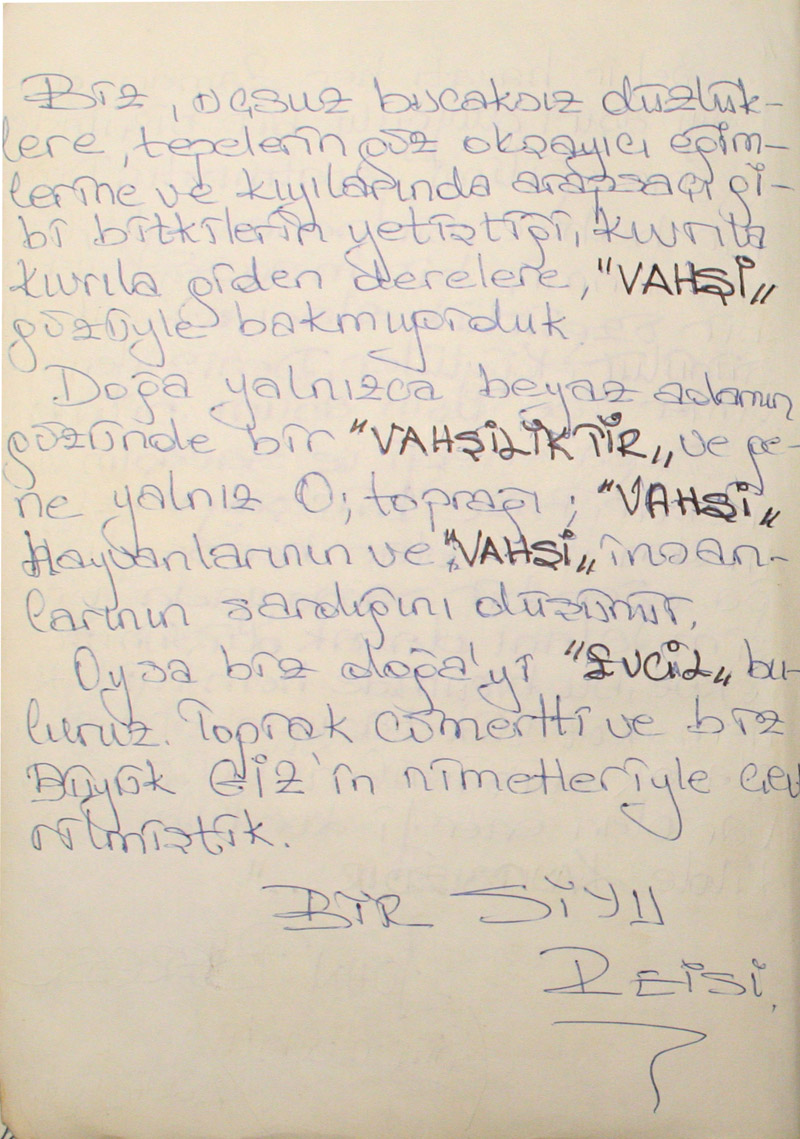 Biz, uçsuz bucaksız düzlük-
lere, tepelerin göz okşayıcı eğim-
lerine ve kıyılarında arapsaçı gi-
bi bitkilerin yetiştiği, kıvrıla
kıvrıla giden derelere, "VAHŞİ"
gözüyle bakmıyorduk.
Doğa yalnızca beyaz adamın
gözünde bir "VAHŞİLİKTİR" ve ge-
ne yalnız O; toprağı; "VAHŞİ"
Hayvanlarının ve "VAHŞİ" insan-
larının sardığını düşünür.
Oysa biz doğa'yı "EVCİL" bu-
luruz. Toprak cömertti ve biz
Büyük Giz'in nimetleriyle çev
rilmiştik.
BİR SİYU
REİSİ,